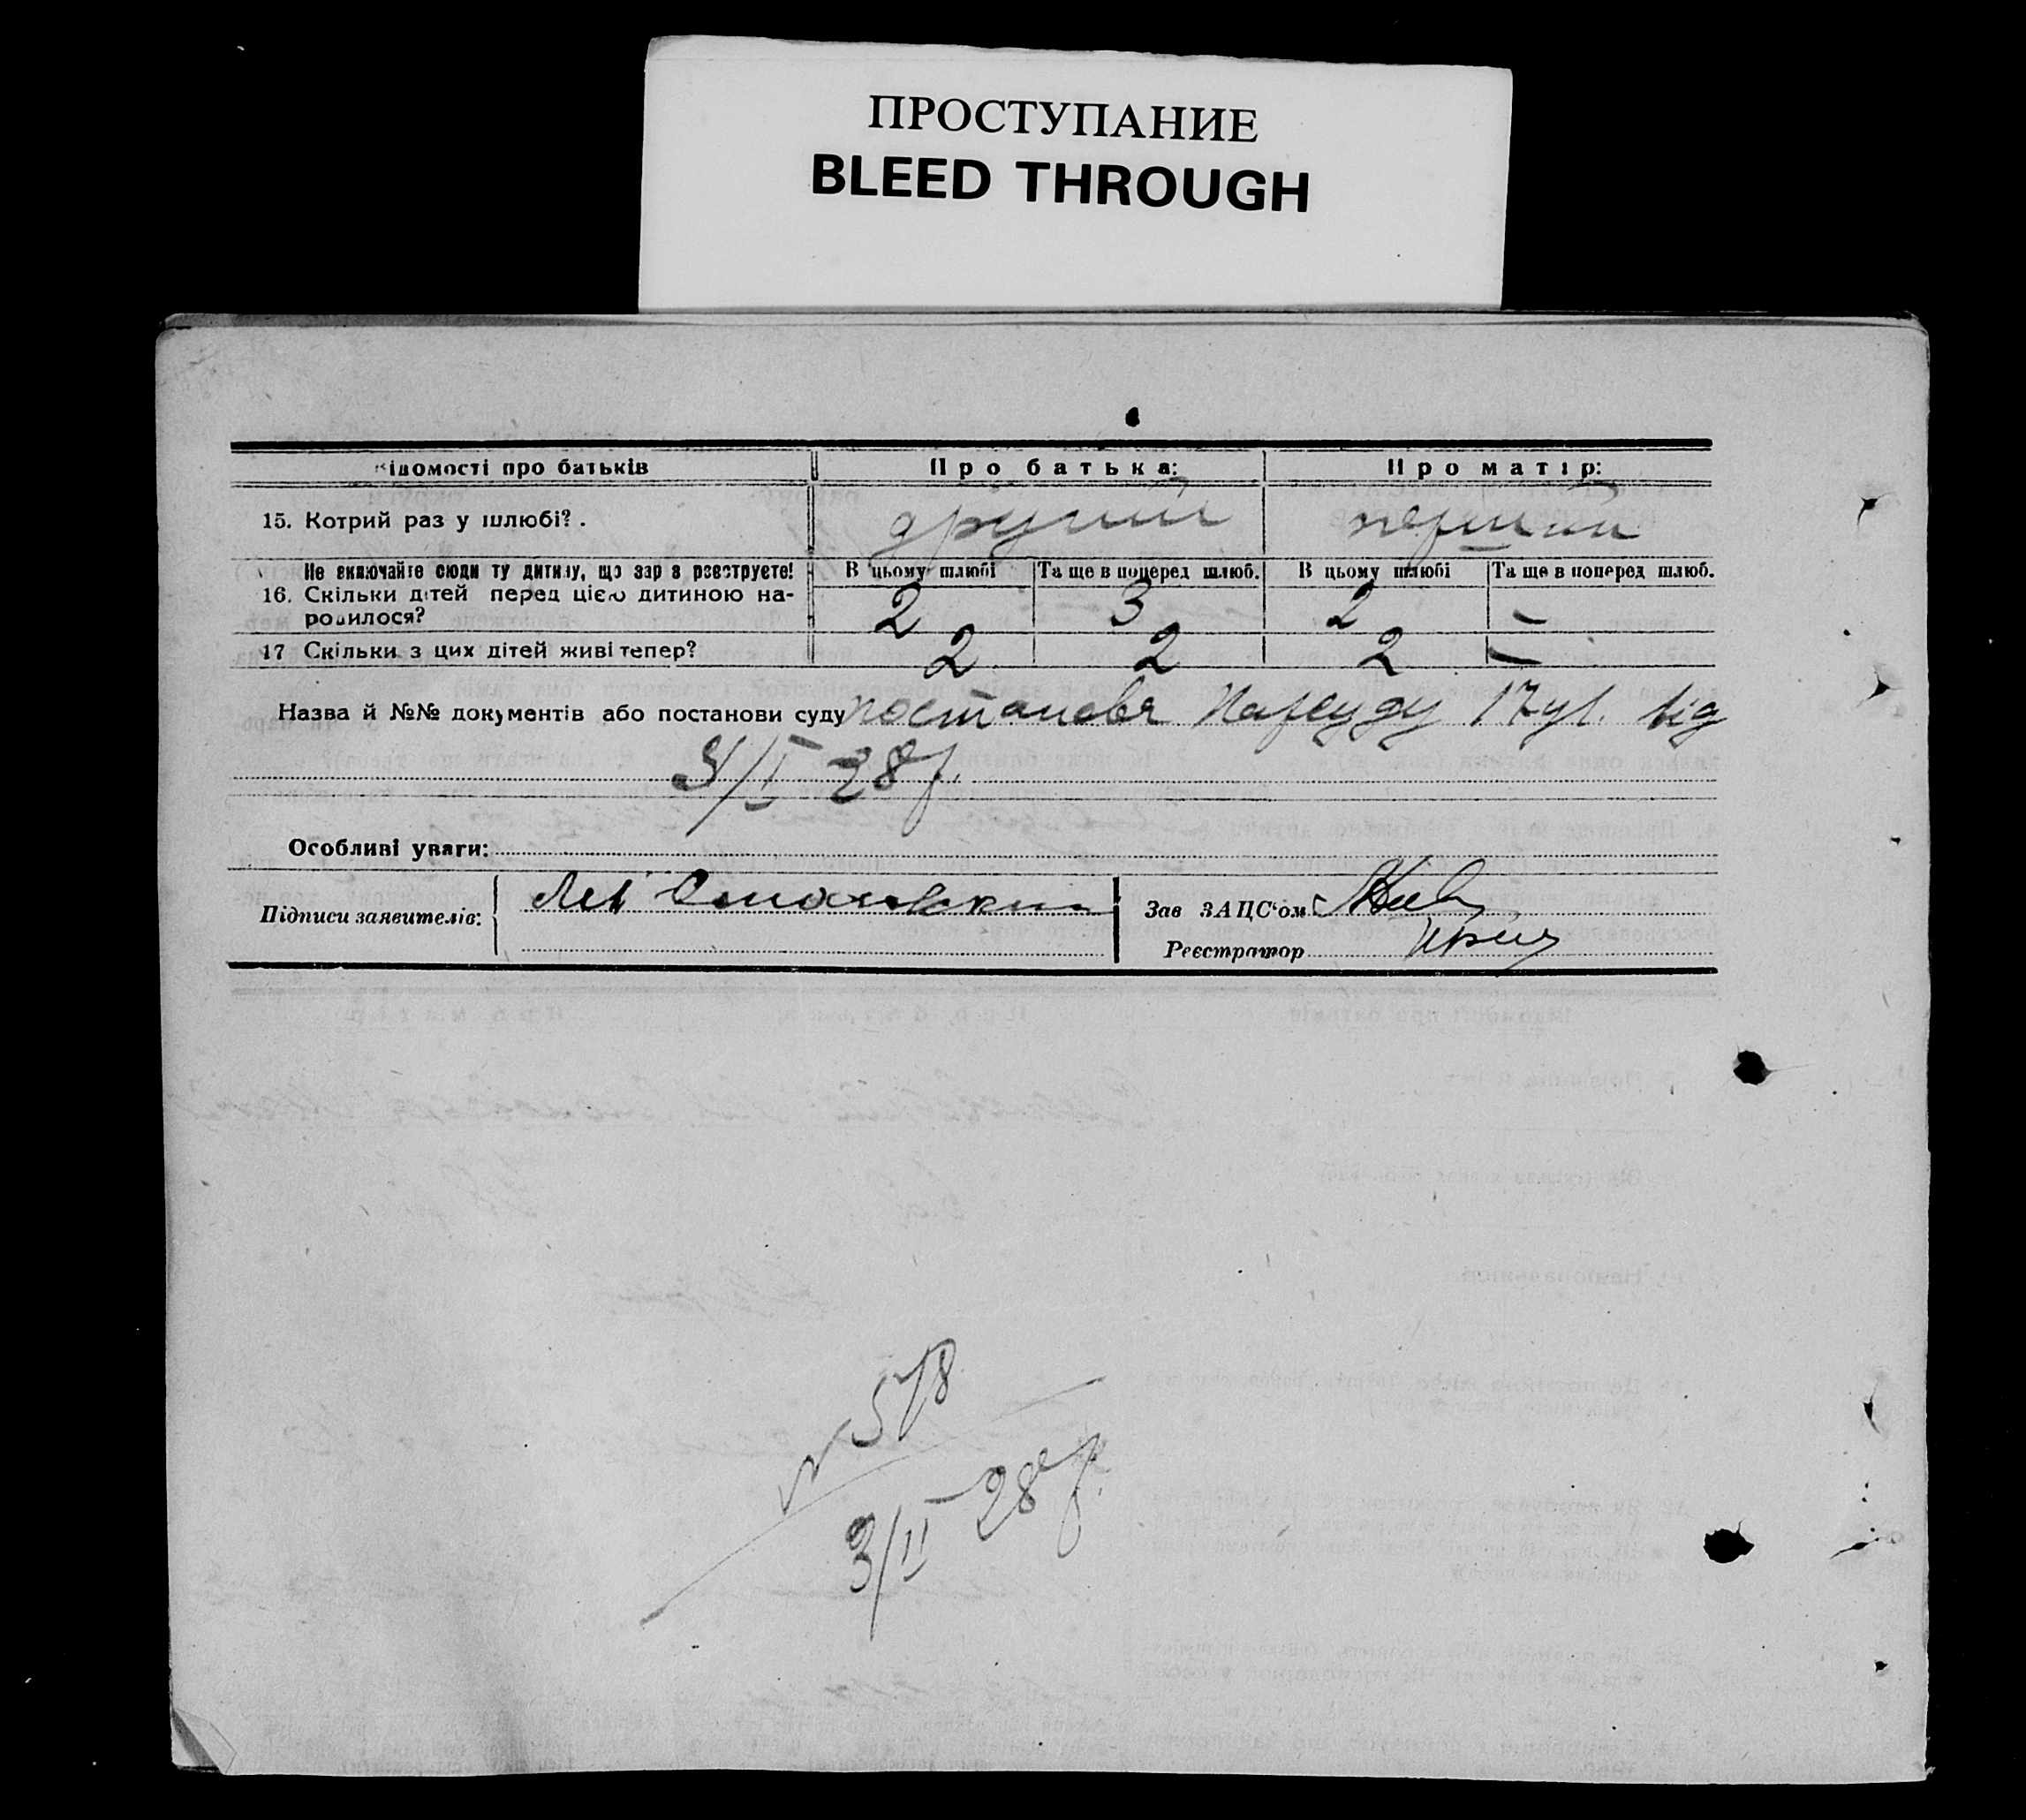 ПРОСТУПАНИЕ
BLEED THROUGH
Відомості про батьків
Про батька:
Про матір:
15. Котрий раз у шлюбі?.
другий
перший
Не включайте сюди ту дитину, що зараз реєструєте!
В цьому шлюбі
Та ще в поперед шлюб.
В цьому шлюбі
Та ще в поперед шлюб.
16. Скільки дітей перед цією дитиною на-
родилося?
2
3
2
—
17 Скільки з цих дітей живі тепер?
2
2
2
—
Назва й №№ документів або постанови суду постанова Нарсуду 17 від
28 р.
Особливі уваги:
Підписи заявителів:
Лев
Зав ЗАЦС'ом
Реєстратор
N 578
3/II 28 р.